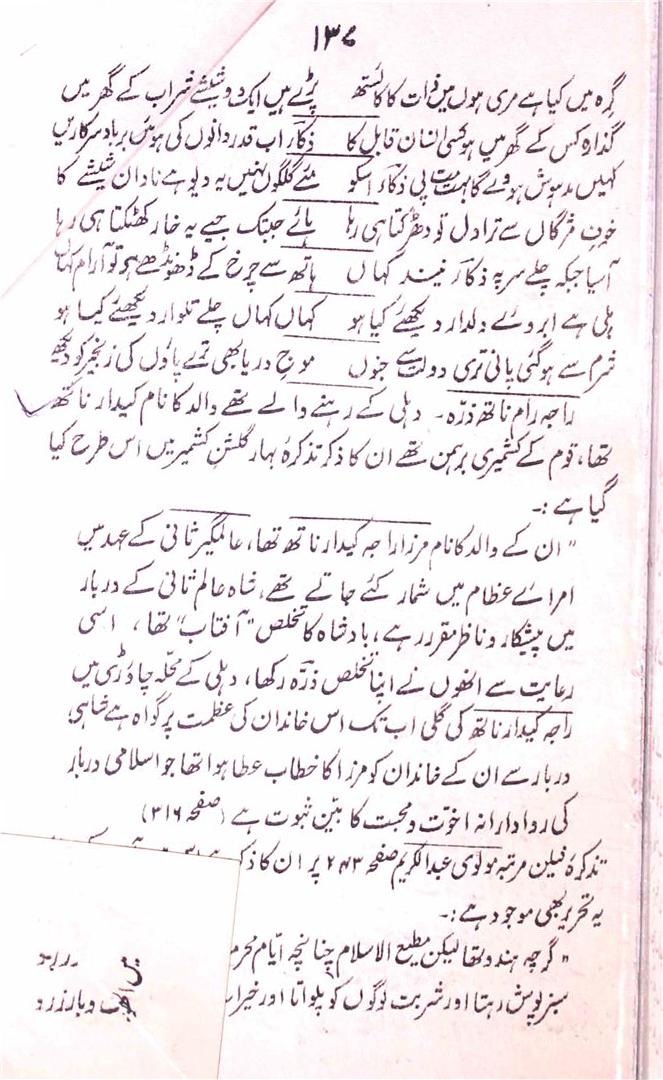 ۱۳۷
گرہ میں کیا ہے مری ہوں میں ذات کا کائستھ پڑے ہیں ایک دو شیشے شراب کے گھر میں
گذارہ کس کے گھر میں ہو کسی انسان قابل کا ذکار اب قدر دانوں کی ہوئیں برباد سرکاریں
کہیں مدہوش ہووے گا بہت مت پی ذکار اسکو مئے گلگوں نہیں یہ دیو ہے نادان شیشے کا
خون مژگاں سے ترا دل تو دھڑکتا ہی رہا ہائے جبتک جیے یہ خار کھٹکتا ہی رہا
آسیا جبکہ چلے سر پہ ذکار نیند کہاں ہاتھ سے چرخ کے ڈھونڈھے ہے تو آرام کہاں
ہلی ہے ابروئے دلدار دیکھئے کیا ہو کہاں کہاں چلے تلوار دیکھئے کیا ہو
شرم سے ہو گئی پانی تری دولت سے جنوں موج دریا بھی ترے پاؤں کی زنجیر کو دیکھ
راجہ رام ناتھ ذرہ۔ دہلی کے رہنے والے تھے والد کا نام کیدار ناتھ
تھا، قوم کے کشمیری برہمن تھے ان کا ذکر تذکرۂ بہار گلشن کشمیر میں اس طرح کیا
گیا ہے :۔
"ان کے والد کا نام مرزا راجہ کیدار ناتھ تھا، عالمگیر ثانی کے عہد میں
امرائے عظام میں شمار کئے جاتے تھے، شاہ عالم ثانی کے دربار
میں پیشکار و ناظر مقرر رہے، بادشاہ کا تخلص "آفتاب" تھا، اسی
رعایت سے انھوں نے اپنا تخلص ذرہ رکھا، دہلی کے محلہ چاوڑی میں
راجہ کیدار ناتھ کی گلی اب تک اس خاندان کی عظمت پر گواہ ہے شاہی
دربار سے ان کے خاندان کو مرزا کا خطاب عطا ہوا تھا جو اسلامی دربار
کی روادارانہ اخوت و محبت کا بیّن ثبوت ہے (صفحہ ۳۱۶)
تذکرۂ فیلن مرتبہ مولوی عبدالکریم صفحہ ۲۴۳ پر ان کا ذکر
یہ تحریر بھی موجود ہے :۔
"گرچہ ہندو تھا لیکن مطیع الاسلام چنانچہ ایّام محرم میں
سبز پوش رہتا اور شربت لوگوں کو پلواتا اور خیرات